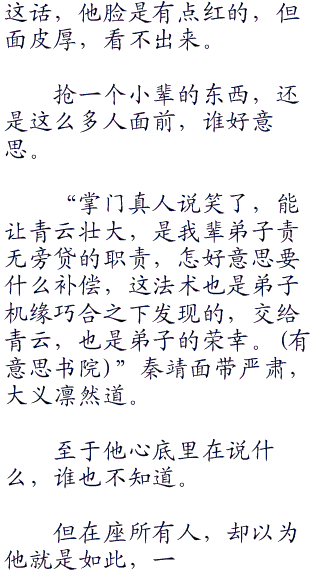 这话，他脸是有点红的，但
面皮厚，看不出来。
抢一个小辈的东西，还
是这么多人面前，谁好意
思。
“掌门真人说笑了，能
让青云壮大，是我辈弟子责
无旁贷的职责，怎好意思要
什么补偿，这法术也是弟子
机缘巧合之下发现的，交给
青云，也是弟子的荣幸。(有
意思书院)”秦靖面带严肃，
大义凛然道。
至于他心底里在说什
么，谁也不知道。
但在座所有人，却以为
他就是如此，一